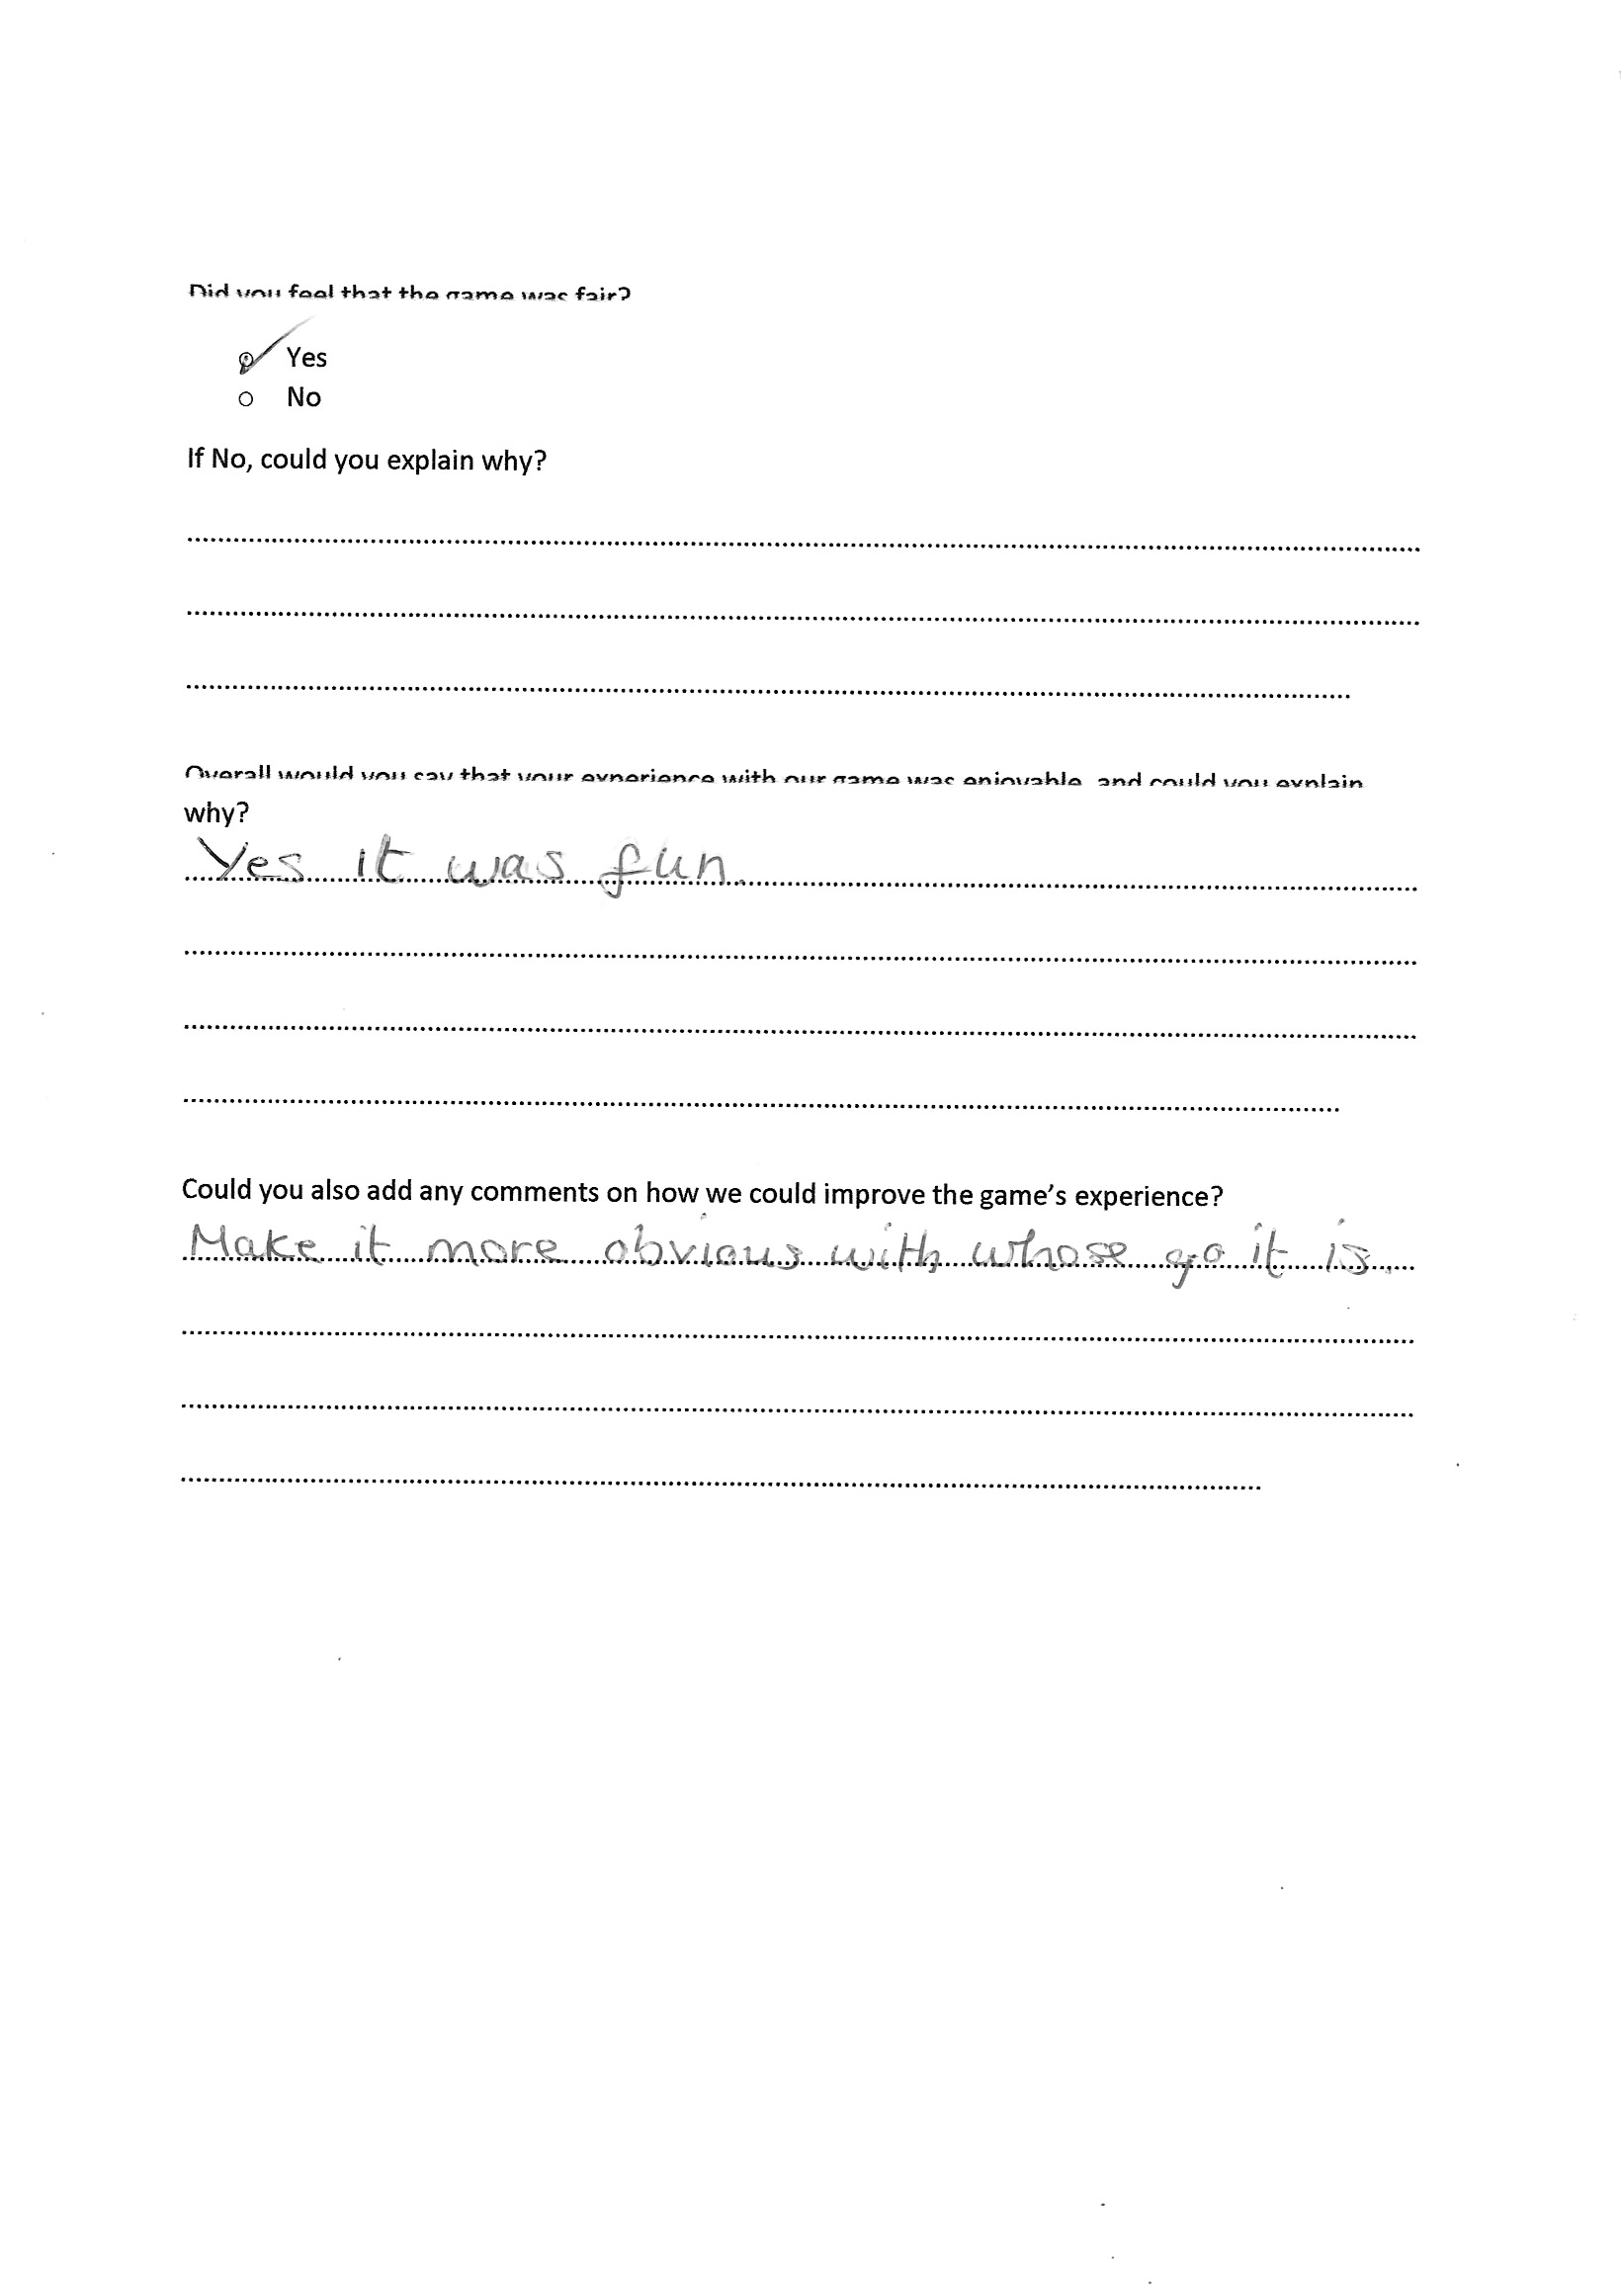 Did you feel that the game was fair?
Yes
No
If No, could you explain why?
Overall would you say that your experience with our game was enjoyable, and could you explain
why?
Yes it was fun.
Could you also add any comments on how we could improve the game's experience?
Make it more obvious with whose go it is.